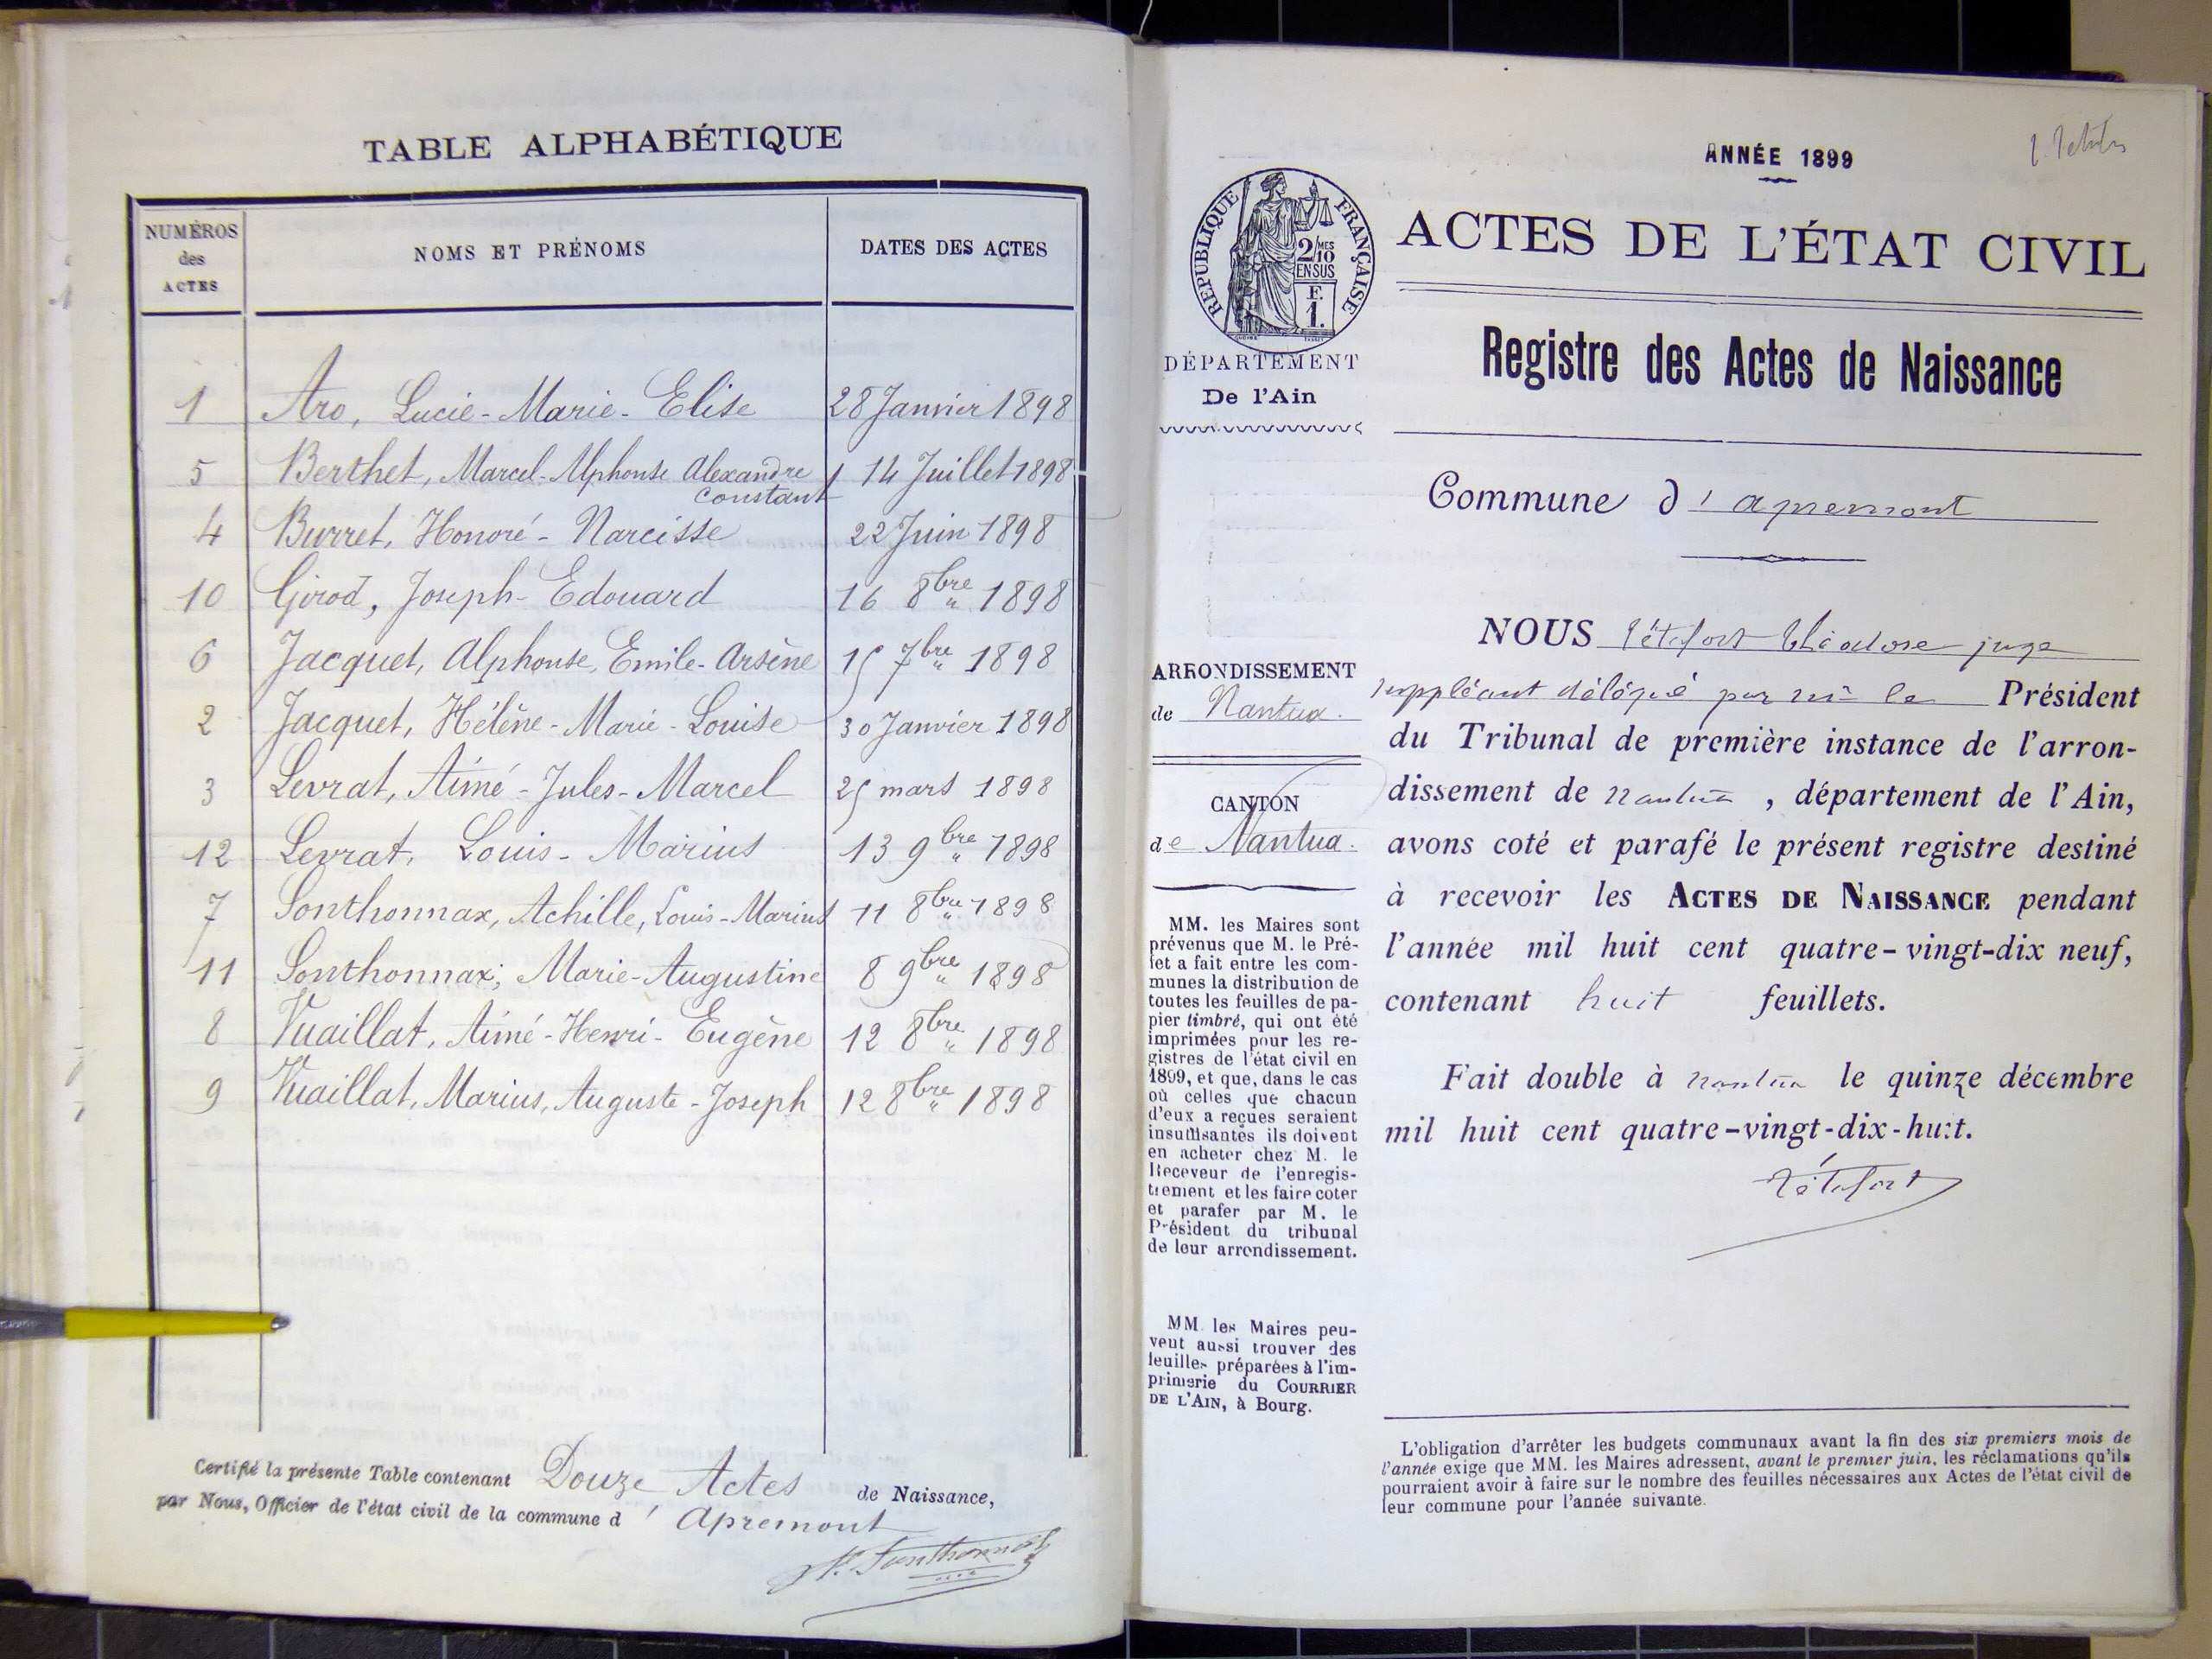 TABLE ALPHABÉTIQUE
NUMÉROS des ACTES NOMS ET PRÉNOMS DATES DES ACTES
1 Aro, Lucie-Marie-Elise 28 Janvier 1898
5 Berthet, Marcel-Alphonse Alexandre 14 Juillet 1898
constant
4 Burret, Honoré-Narcisse 22 Juin 1898
10 Girod, Joseph-Edouard 16 8bre 1898
6 Jacquet, Alphonse, Emile-Arsène 15 7bre 1898
2 Jacquet, Hélène-Marie-Louise 30 Janvier 1898
3 Levrat, Aimé-Jules-Marcel 25 mars 1898
12 Levrat, Louis-Marius 13 9bre 1898
7 Sonthonnax, Achille, Louis-Marius 11 8bre 1898
11 Sonthonnax, Marie-Augustine 8 9bre 1898
8 Vuaillat, Aimé-Henri-Eugène 12 8bre 1898
9 Vuaillat, Marius, Auguste-Joseph 12 8bre 1898
Certifié la présente Table contenant Douze Actes de Naissance,
par Nous, Officier de l'état civil de la commune d' Apremont
Sonthonnax
ANNÉE 1899
RÉPUBLIQUE FRANÇAISE
2/10 MES
EN SUS
F.
1.
ACTES DE L'ÉTAT CIVIL
DÉPARTEMENT
De l'Ain
Registre des Actes de Naissance
Commune d' apremont
ARRONDISSEMENT
de Nantua.
CANTON
de Nantua.
MM. les Maires sont
prévenus que M. le Pré-
fet a fait entre les com-
munes la distribution de
toutes les feuilles de pa-
pier timbré, qui ont été
imprimées pour les re-
gistres de l'état civil en
1899, et que, dans le cas
où celles que chacun
d'eux a reçues seraient
insuffisantes ils doivent
en acheter chez M. le
Receveur de l'enregis-
trement et les faire coter
et parafer par M. le
Président du tribunal
de leur arrondissement.
MM. les Maires peu-
vent aussi trouver des
feuilles préparées à l'im-
primerie du COURRIER
DE L'AIN, à Bourg.
NOUS théodore juge
suppléant délégué par mr le Président
du Tribunal de première instance de l'arron-
dissement de nantua, département de l'Ain,
avons coté et parafé le présent registre destiné
à recevoir les ACTES DE NAISSANCE pendant
l'année mil huit cent quatre-vingt-dix neuf,
contenant huit feuillets.
Fait double à nantua le quinze décembre
mil huit cent quatre-vingt-dix-huit.
L'obligation d'arrêter les budgets communaux avant la fin des six premiers mois de
l'année exige que MM. les Maires adressent, avant le premier juin, les réclamations qu'ils
pourraient avoir à faire sur le nombre des feuilles nécessaires aux Actes de l'état civil de
leur commune pour l'année suivante.